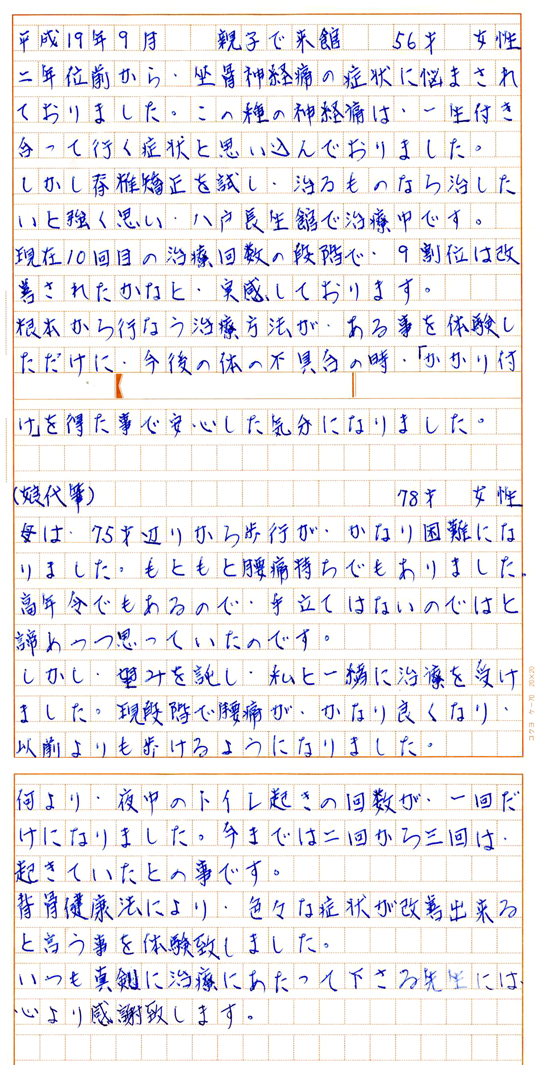 平成19年9月　親子で来館　56才　女性
二年位前から、坐骨神経痛の症状に悩まされ
ておりました。この種の神経痛は、一生付き
合って行く症状と思い込んでおりました。
しかし脊椎矯正を試し、治るものなら治した
いと強く思い、八戸長生館で治療中です。
現在10回目の治療回数の段階で、9割位は改
善されたかなと、実感しております。
根本から行なう治療方法が、ある事を体験し
ただけに、今後の体の不具合の時、「かかり付
け」を得た事で安心した気分になりました。
(娘代筆)　78才　女性
母は、75才辺りから歩行が、かなり困難にな
りました。もともと腰痛持ちでもありました。
高年令でもあるので、手立てはないのではと
諦めつつ思っていたのです。
しかし、望みを託し、私と一緒に治療を受け
ました。現段階で腰痛が、かなり良くなり、
以前よりも歩けるようになりました。
コクヨ　ケ-70　20×20
何より、夜中のトイレ起きの回数が、一回だ
けになりました。今までは二回から三回は、
起きていたとの事です。
背骨健康法により、色々な症状が改善出来る
と言う事を体験致しました。
いつも真剣に治療にあたって下さる先生には、
心より感謝致します。